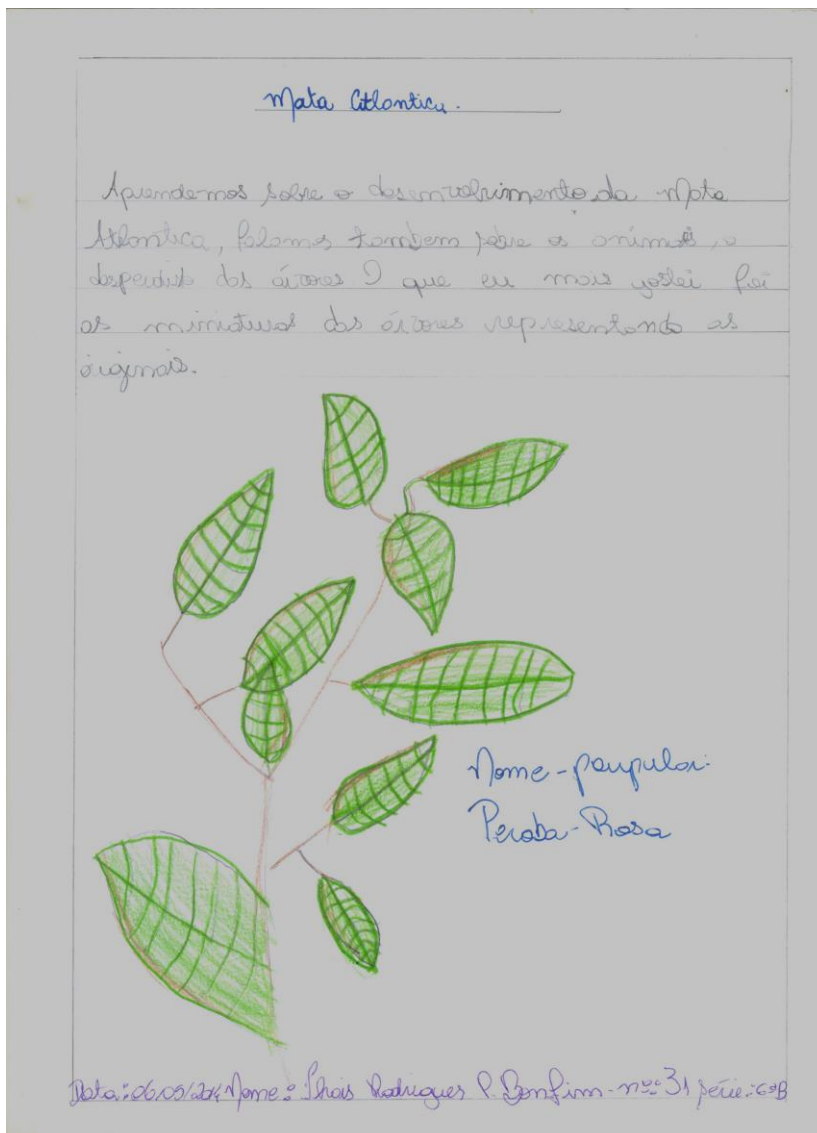 Mata Atlontica.
Aprendemos sobre o desenvolvimento da Mata
Atlontica, falamos tambem sobre os animais, o
desperdicio das árvores O que eu mais gostei foi
as miniaturas das árvores representando as
originais.
Nome-poupular:
Peroba-Rosa
Data: 06/05/2014 Nome: Thais Rodrigues P. Bonfim - nº: 31 série: 6ºB